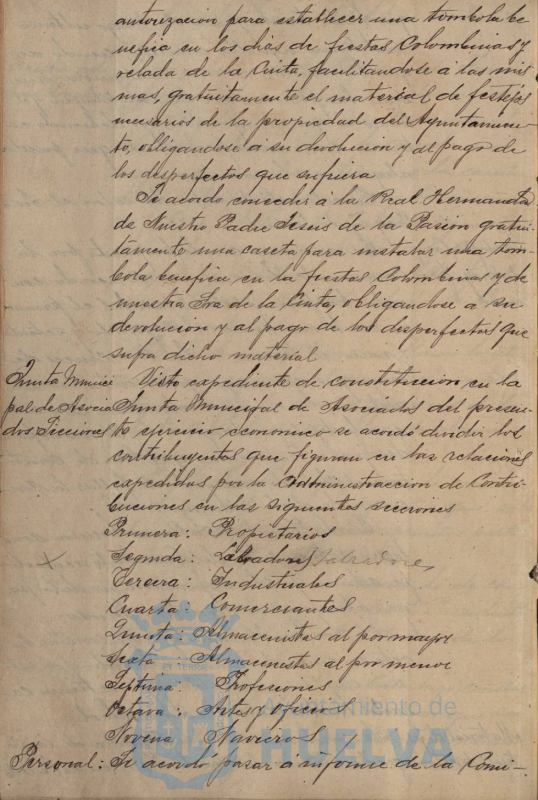 autorización para establecer una tombola be
nefica en los dias de fiestas Colombinas y
velada de la Cinta, facilitandose á las mis
mas, gratuitamente el material de festejos
necesarios de la propiedad del Ayuntamien-
to, obligandose a su devolucion y al pago de
los desperfectos que sufriera
Se acordo conceder á la Real Hermandad
de Nuestro Padre Jesus de la Pasion gratui-
tamente una caseta para instalar una tom-
bola benefica en la fiestas Colombinas y de
nuestra Sra de la Cinta, obligandose a su
devolucion y al pago de los desperfectos que
sufra dicho material
Junta Munici
pal de Asocia
dos Secciones
Visto expediente de constitucion en la
Junta Municipal de Asociados del presen-
te ejercicio economico se acordó dividir los
contribuyentes que figuran en las relaciones
expedidas por la Administraccion de Contri-
buciones en las siguientes secciones
Primera: Propietarios
Segunda: Labradores Labradores
Tercera: Industriales
Cuarta: Comerciantes
Quinta: Almacenistas al por mayor
Sexta Almacenistas al por menor
Septima: Profesiones
Octava: Artes y oficios
Novena Navieros
Personal: Se acordo pasar a informe de la Comi-
Ayuntamiento de
HUELVA